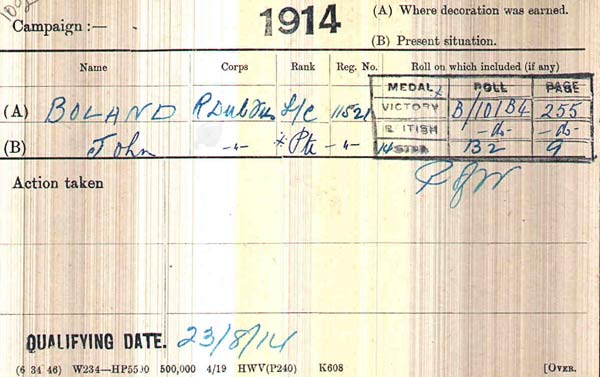 Campaign :— 1914 (A) Where decoration was earned.
(B) Present situation.
Name Corps Rank Reg. No. Roll on which included (if any)
MEDAL ROLL PAGE
(A) BOLAND R Dub Fus L/C 11521 VICTORY B/101B4 255
BRITISH -do- -do-
(B) John -"- *Pte -"- 14 STAR 132 9
Action taken
QUALIFYING DATE. 23/8/14
(6 34 46) W234—HP5590 500,000 4/19 HWV(P240) K608 [OVER.